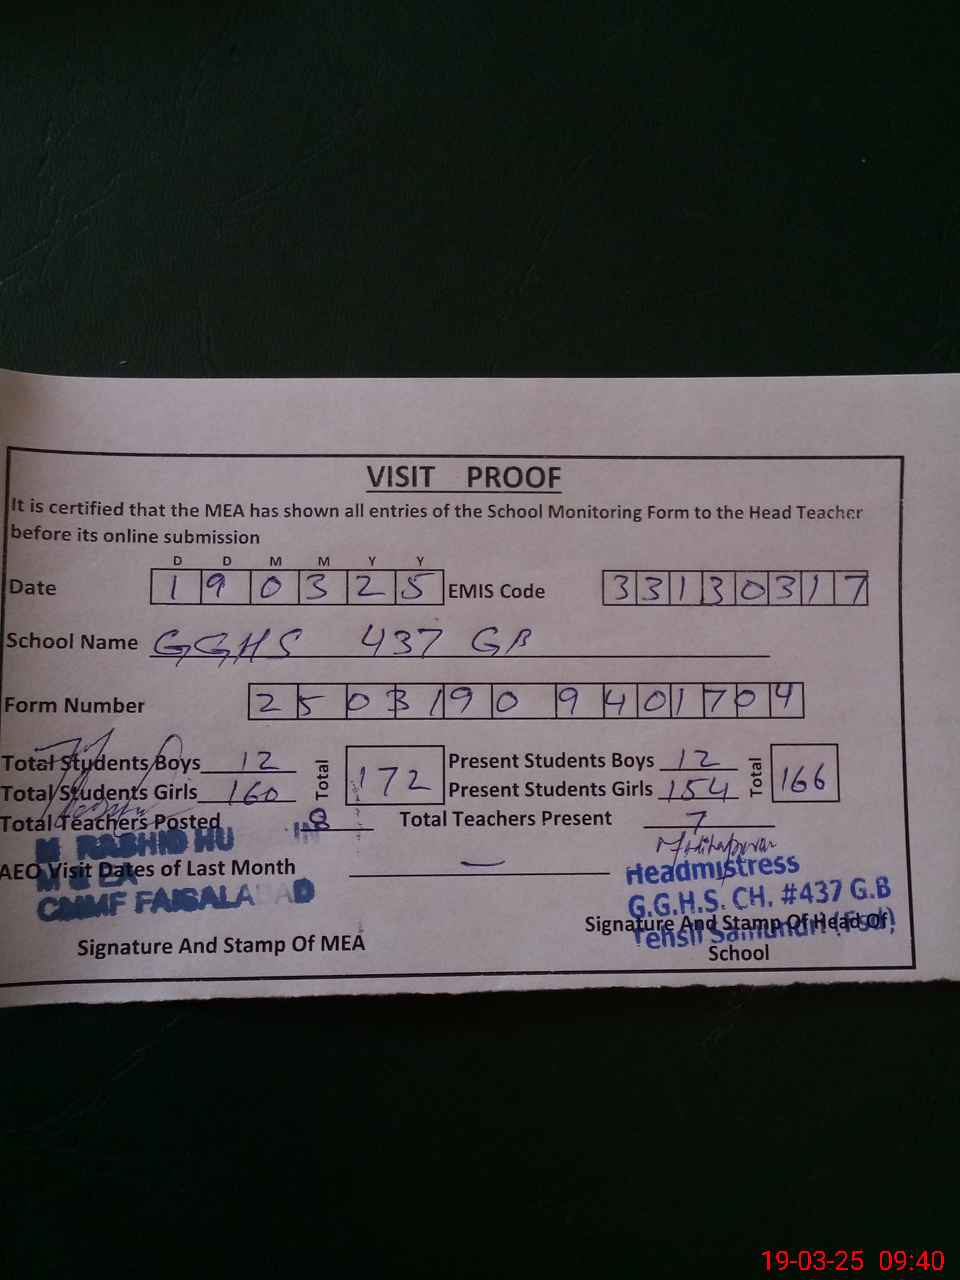 VISIT PROOF
It is certified that the MEA has shown all entries of the School Monitoring Form to the Head Teacher
before its online submission
D D M M Y Y
Date 1 9 0 3 2 5 EMIS Code 3 3 1 3 0 3 1 7
School Name GGHS 437 GB
Form Number 2 5 0 3 1 9 0 9 4 0 1 7 0 4
Total Students Boys 12 Total 172 Present Students Boys 12 Total 166
Total Students Girls 160 Present Students Girls 154
Total Teachers Posted 8 Total Teachers Present 7
M RASHID HU
AEO Visit Dates of Last Month —
Headmistress
CMMF FAISALABAD
G.G.H.S. CH. #437 G.B
Signature And Stamp Of MEA
Signature And Stamp Of Head Of
Tehsil Samundri (Fsd)
School
19-03-25 09:40